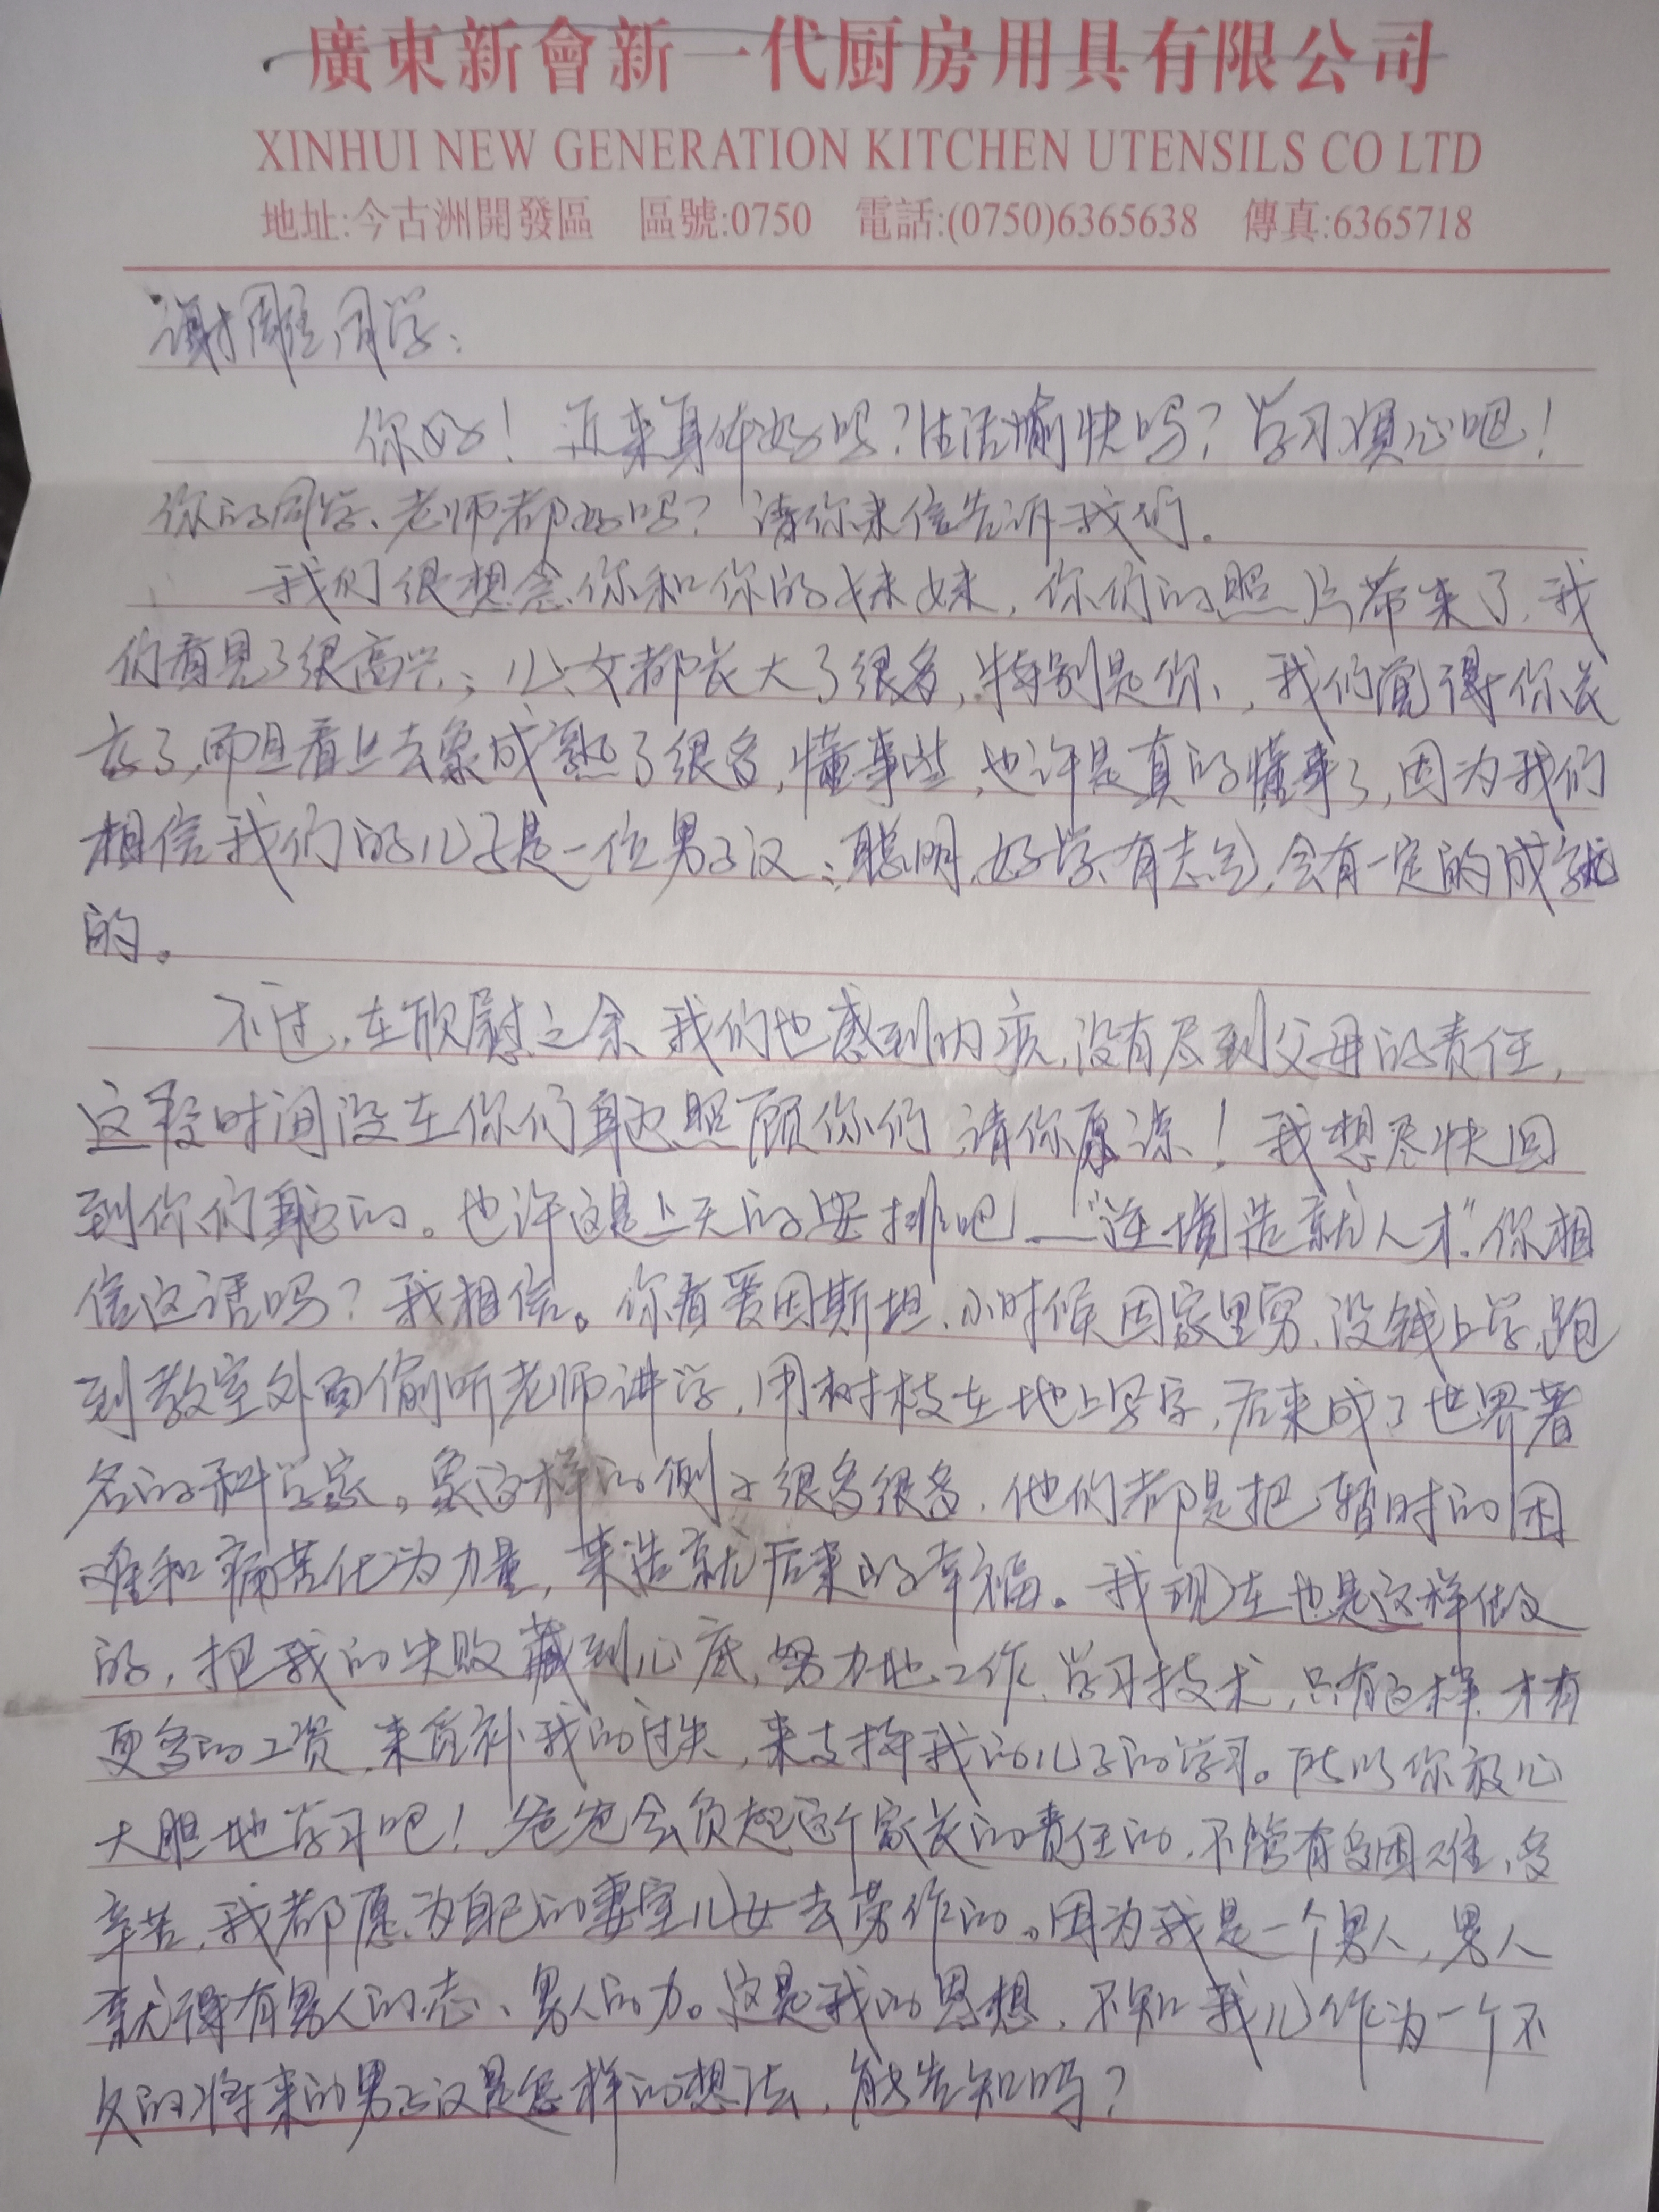 廣東新會新一代厨房用具有限公司
XINHUI NEW GENERATION KITCHEN UTENSILS CO LTD
地址:今古洲開發區 區號:0750 電話:(0750)6365638 傳真:6365718
谢雕同学:
你好！近来身体好吗?生活愉快吗?学习顺心吧!
你的同学、老师都好吗?请你来信告诉我们。
我们很想念你和你的妹妹,你们的照片带来了,我
们看见了很高兴;儿、女都长大了很多,特别是你,我们觉得你长
高了,而且看上去象成熟了很多,懂事些,也许是真的懂事了,因为我们
相信我们的儿子是一位男子汉:聪明、好学、有志气,会有一定的成就
的。
不过,在欣慰之余,我们也感到内疚,没有尽到父母的责任,
这段时间没在你们身边照顾你们,请你原谅!我想尽快回
到你们身边的。也许这是上天的安排吧——“逆境造就人才”.你相
信这话吗?我相信。你看爱因斯坦,小时候因家里穷,没钱上学,跑
到教室外面偷听老师讲学,用树枝在地上写字,后来成了世界著
名的科学家。象这样的例子很多很多,他们都是把暂时的困
难和痛苦化为力量,来造就后来的幸福。我现在也是这样做
的,把我的失败藏到心底,努力地工作、学习技术,只有这样,才有
更多的工资,来填补我的过失,来支持我的儿子的学习。所以你放心
大胆地学习吧!爸爸会负起这个家长的责任的,不管有多困难,多
辛苦,我都愿为自己的妻室儿女去劳作的。因为我是一个男人,男人
就得有男人的志、男人的力。这是我的思想,不知我儿作为一个不
久的将来的男子汉是怎样的想法,能告知吗?